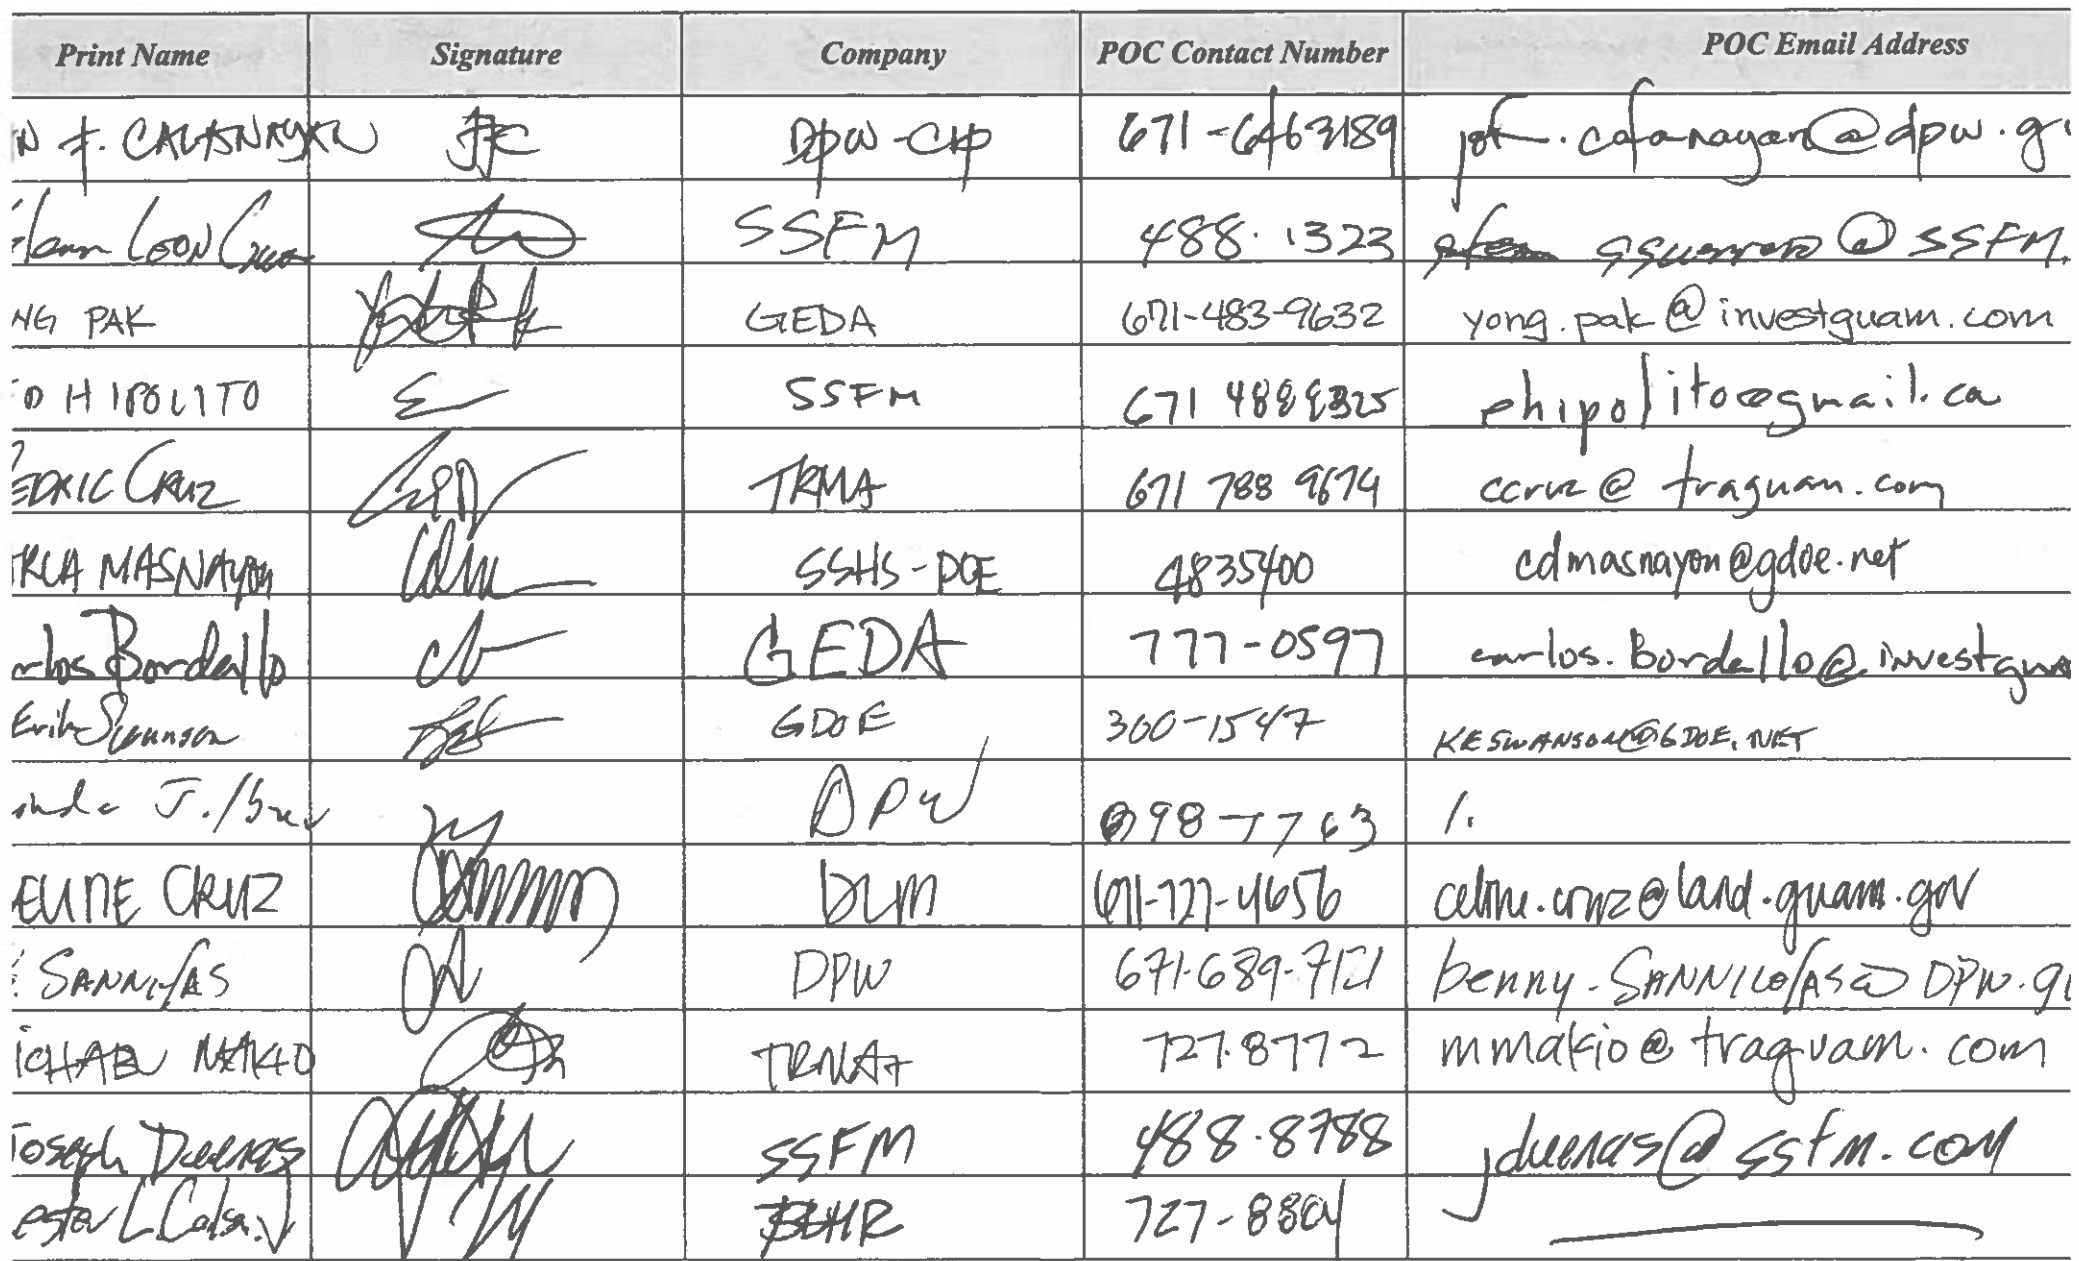 Print Name Signature Company POC Contact Number POC Email Address
N F. CALANAYAN JFC DPW-CIP 671-6463189 john.calanayan@dpw.g
Leon SSFM 488.1323 @SSFM.
NG PAK GEDA 671-483-9632 yong.pak@investguam.com
D HIPOLITO SSFM 671 4888325 ehipolito@gmail.ca
EDRIC CRUZ TRMA 671 788 9674 ccruz@traguam.com
RLA MASNAYON SSHS-DOE 4835400 cdmasnayon@gdoe.net
rlos Bordallo GEDA 777-0597 carlos.Bordallo@investgua
Erik Swanson GDOE 300-1547 KESWANSON@GDOE.NET
J. DPW 898-7763
ELINE CRUZ DLM 671-727-4656 celine.cruz@land.guam.gov
SANNICOLAS DPW 671-689-7121 benny.SANNICOLAS@DPW.gu
ICHAEL MAKIO TRMA+ 727.8772 mmakio@traguam.com
Joseph Duenas SSFM 488.8788 jduenas@ssfm.com
ester L. 727-8801